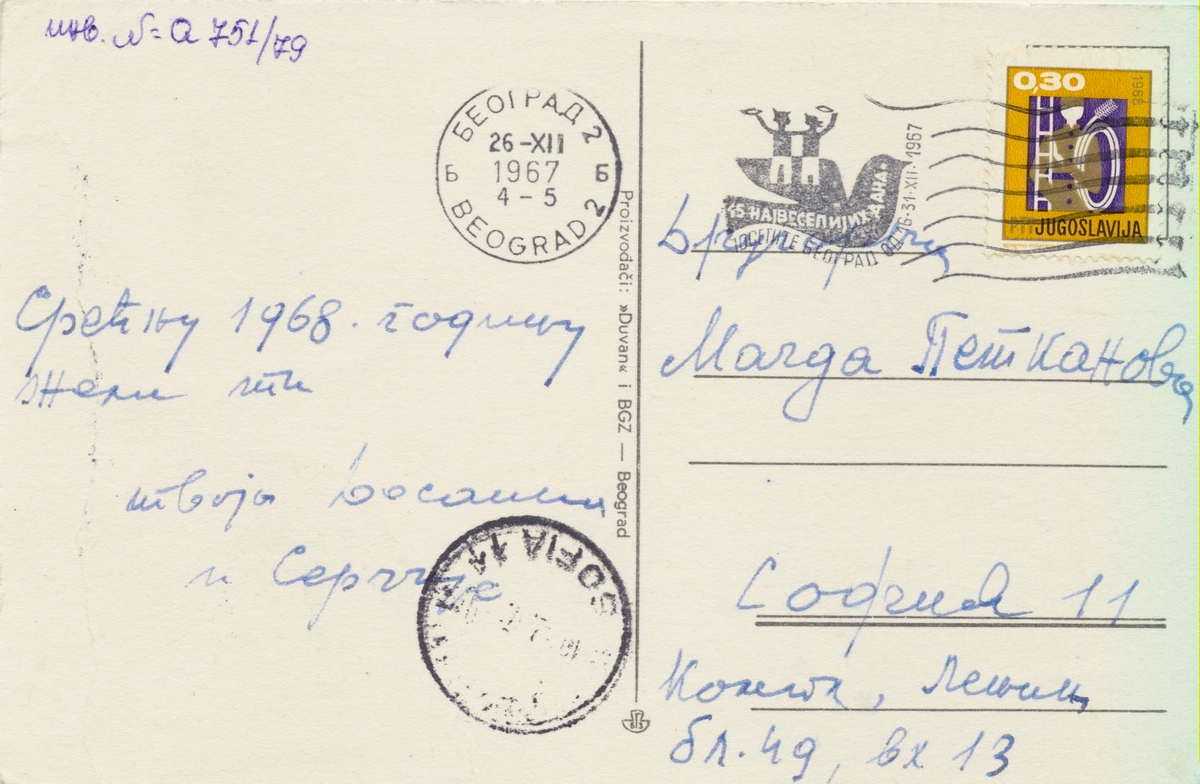 инв. №= а 751/79
БЕОГРАД 2
26-XII
1967
4-5
Б Б
BEOGRAD 2
15 НАЈВЕСЕЛИЈИХ ДАНА
ПОСЕТИТЕ БЕОГРАД ОД 16-31-XII-1967
0,30
1966
PTT JUGOSLAVIJA
Срећну 1968. годину
жели ти
твоја
и
SOFIA 11
Proizvodači: »Duvan« i BGZ — Beograd
Другарица
Магда Петканова
София 11
Компл. Ленин,
бл. 49, вх 13